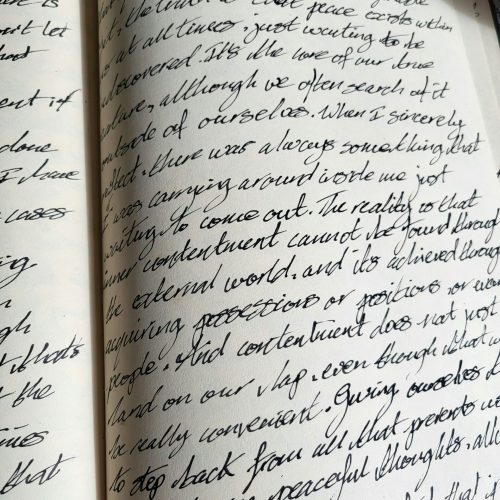 is
rt let
but, the truth is that peace exists within
us at all times, just waiting to be
discovered. It's the core of our true
nature, although we often search of it
outside of ourselves. When I sincerely
reflect, there was always something that
I was carrying around inside me just
waiting to come out. The reality is that
inner contentment cannot be found through
the external world, and its achieved through
acquiring possessions or positions or
people. And contentment does not just
land on our lap, even though that
be really convenient. Giving ourselves
to step back from all that prevents
peaceful thoughts,
that
ent if
done
I have
cases
ng
gh
that's
the
times
that